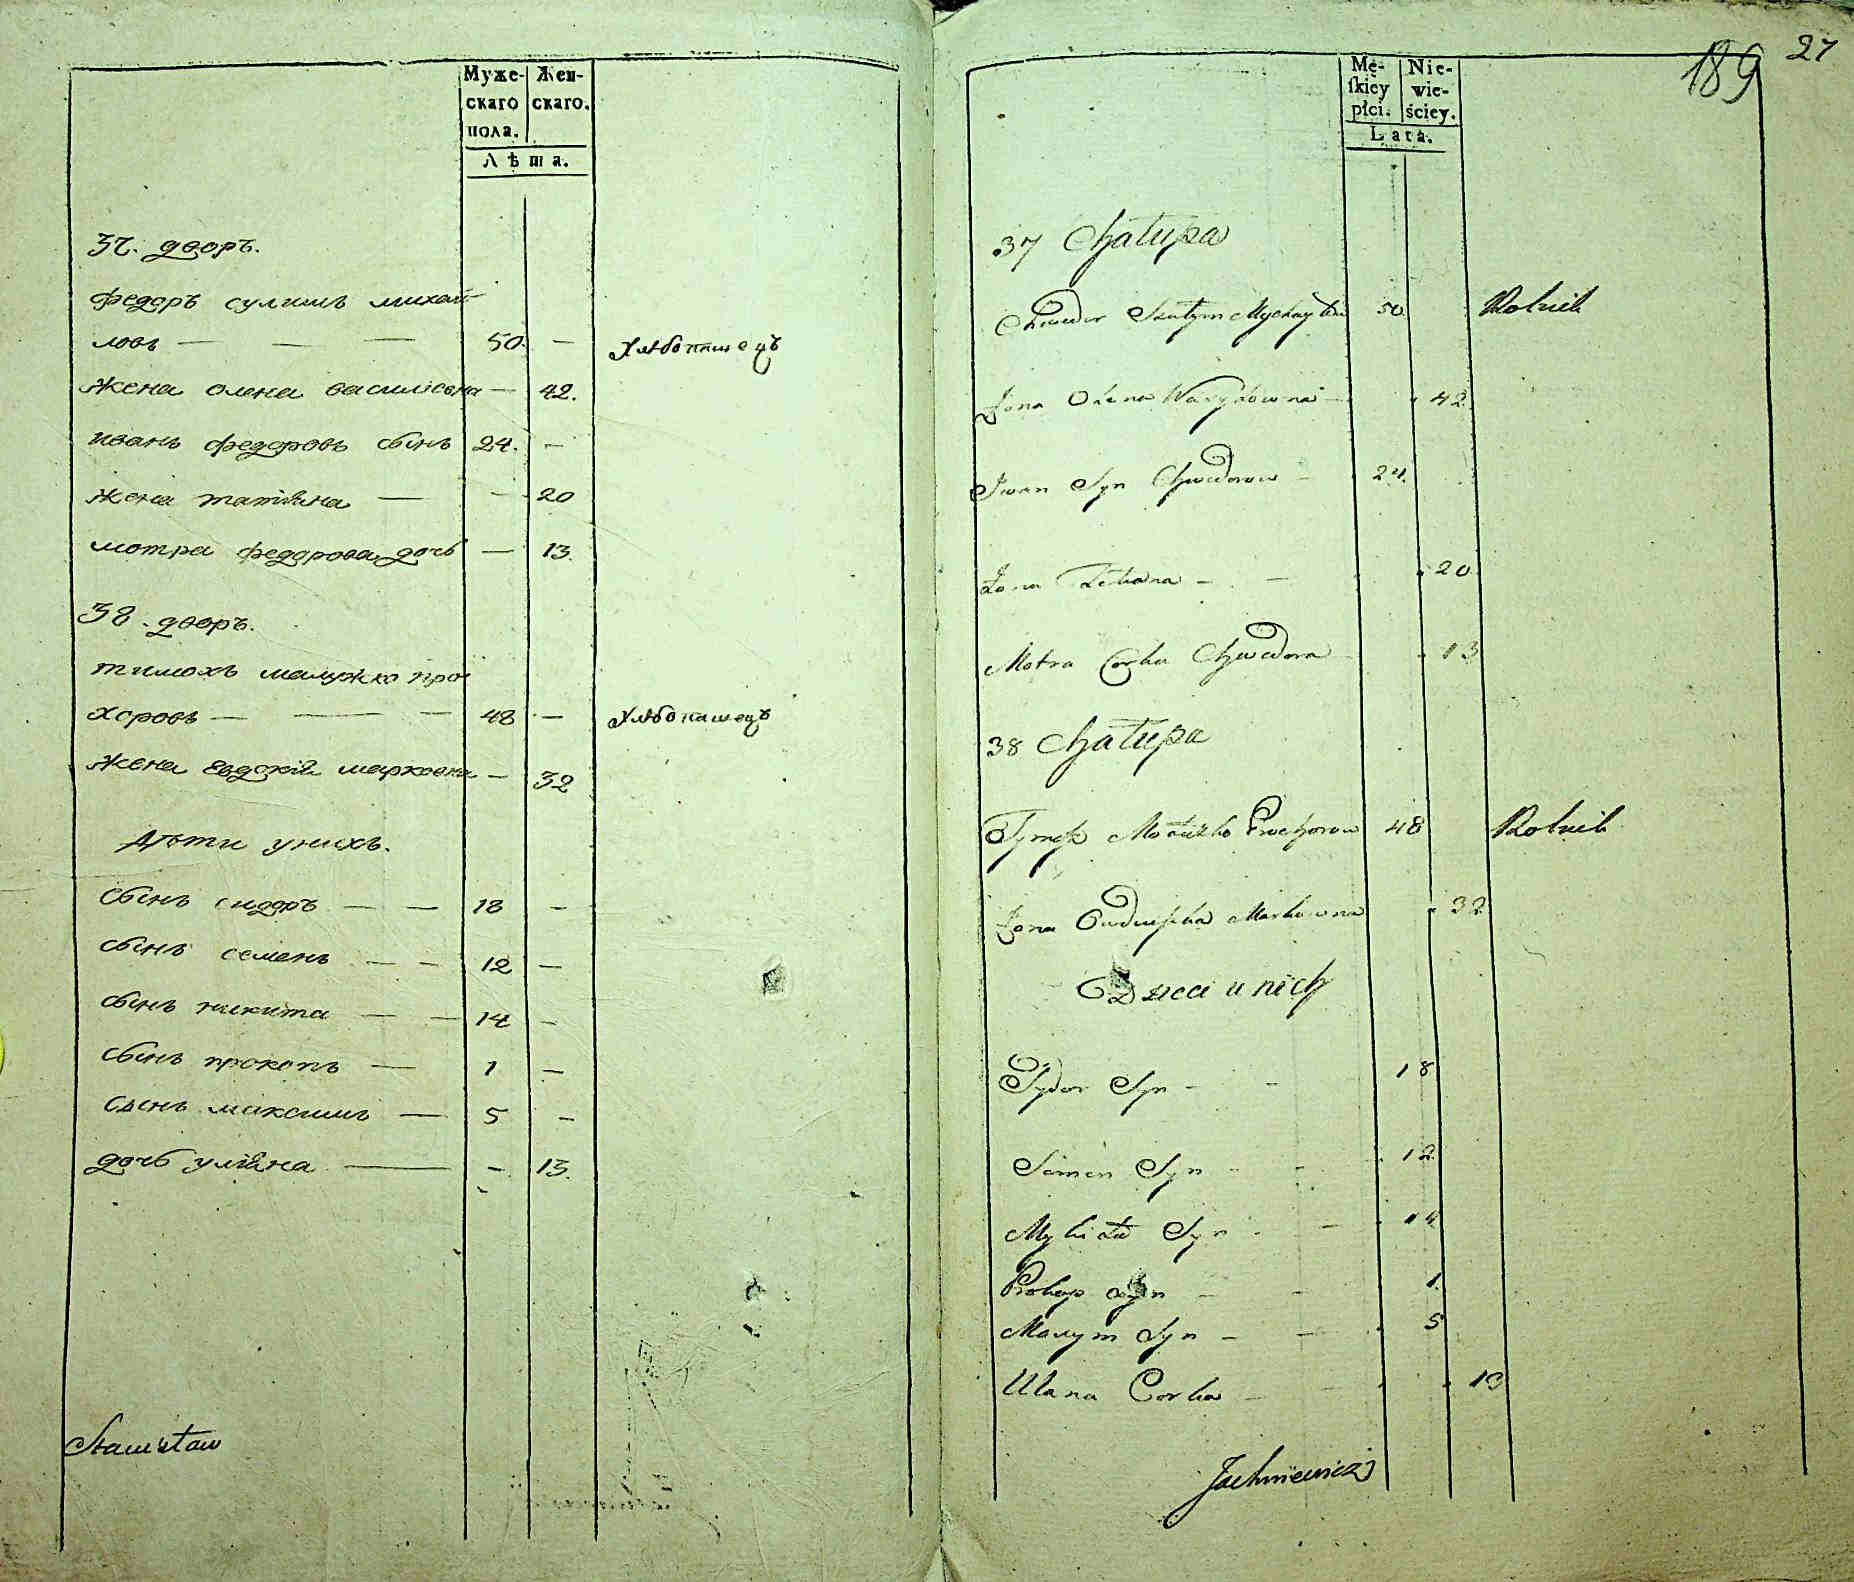 Муже-
скаго
пола.
Жен-
скаго.
Лѣта.
37. дворъ.
федоръ сулимъ михай-
ловъ — — — 50. —
Хлѣбопашецъ
жена олена василіевна — 42.
иванъ федоровъ сынъ 24. —
жена татіана — — 20
мотра федорова дочь — 13.
38. дворъ.
тимохъ малужко про
хоровъ — — — 48 —
Хлѣбопашецъ
жена Евдокіа маркова — 32
Дѣти унихъ.
сынъ сидоръ — — 18 —
сынъ семенъ — — 12 —
сынъ никита — — 14 —
сынъ прокопъ — 1 —
сынъ максимъ — 5 —
дочь уліана — — 13.
Stanisław
189
27
Mę-
skiey
płci.
Nie-
wie-
ściey.
Lata.
37 Chałupa
Chwedor Mychayłow 50.
Rolnik
Żona Ołena Wasylowna — 42
Iwan Syn Chwedorow — 24.
Żona Tetiana — — 20
Motra Corka Chwedora — 13
38 Chałupa
Tymoch Małużko Prochorow 48
Rolnik
Żona Owdiushka Markowna 32
Dzieci u nich
Sydor Syn — — 18
Semen Syn — — 12
Mykita Syn — — 14
Prokop syn — — 1.
Maxym Syn — — 5
Ulana Corka — — 13
Jachniewicz